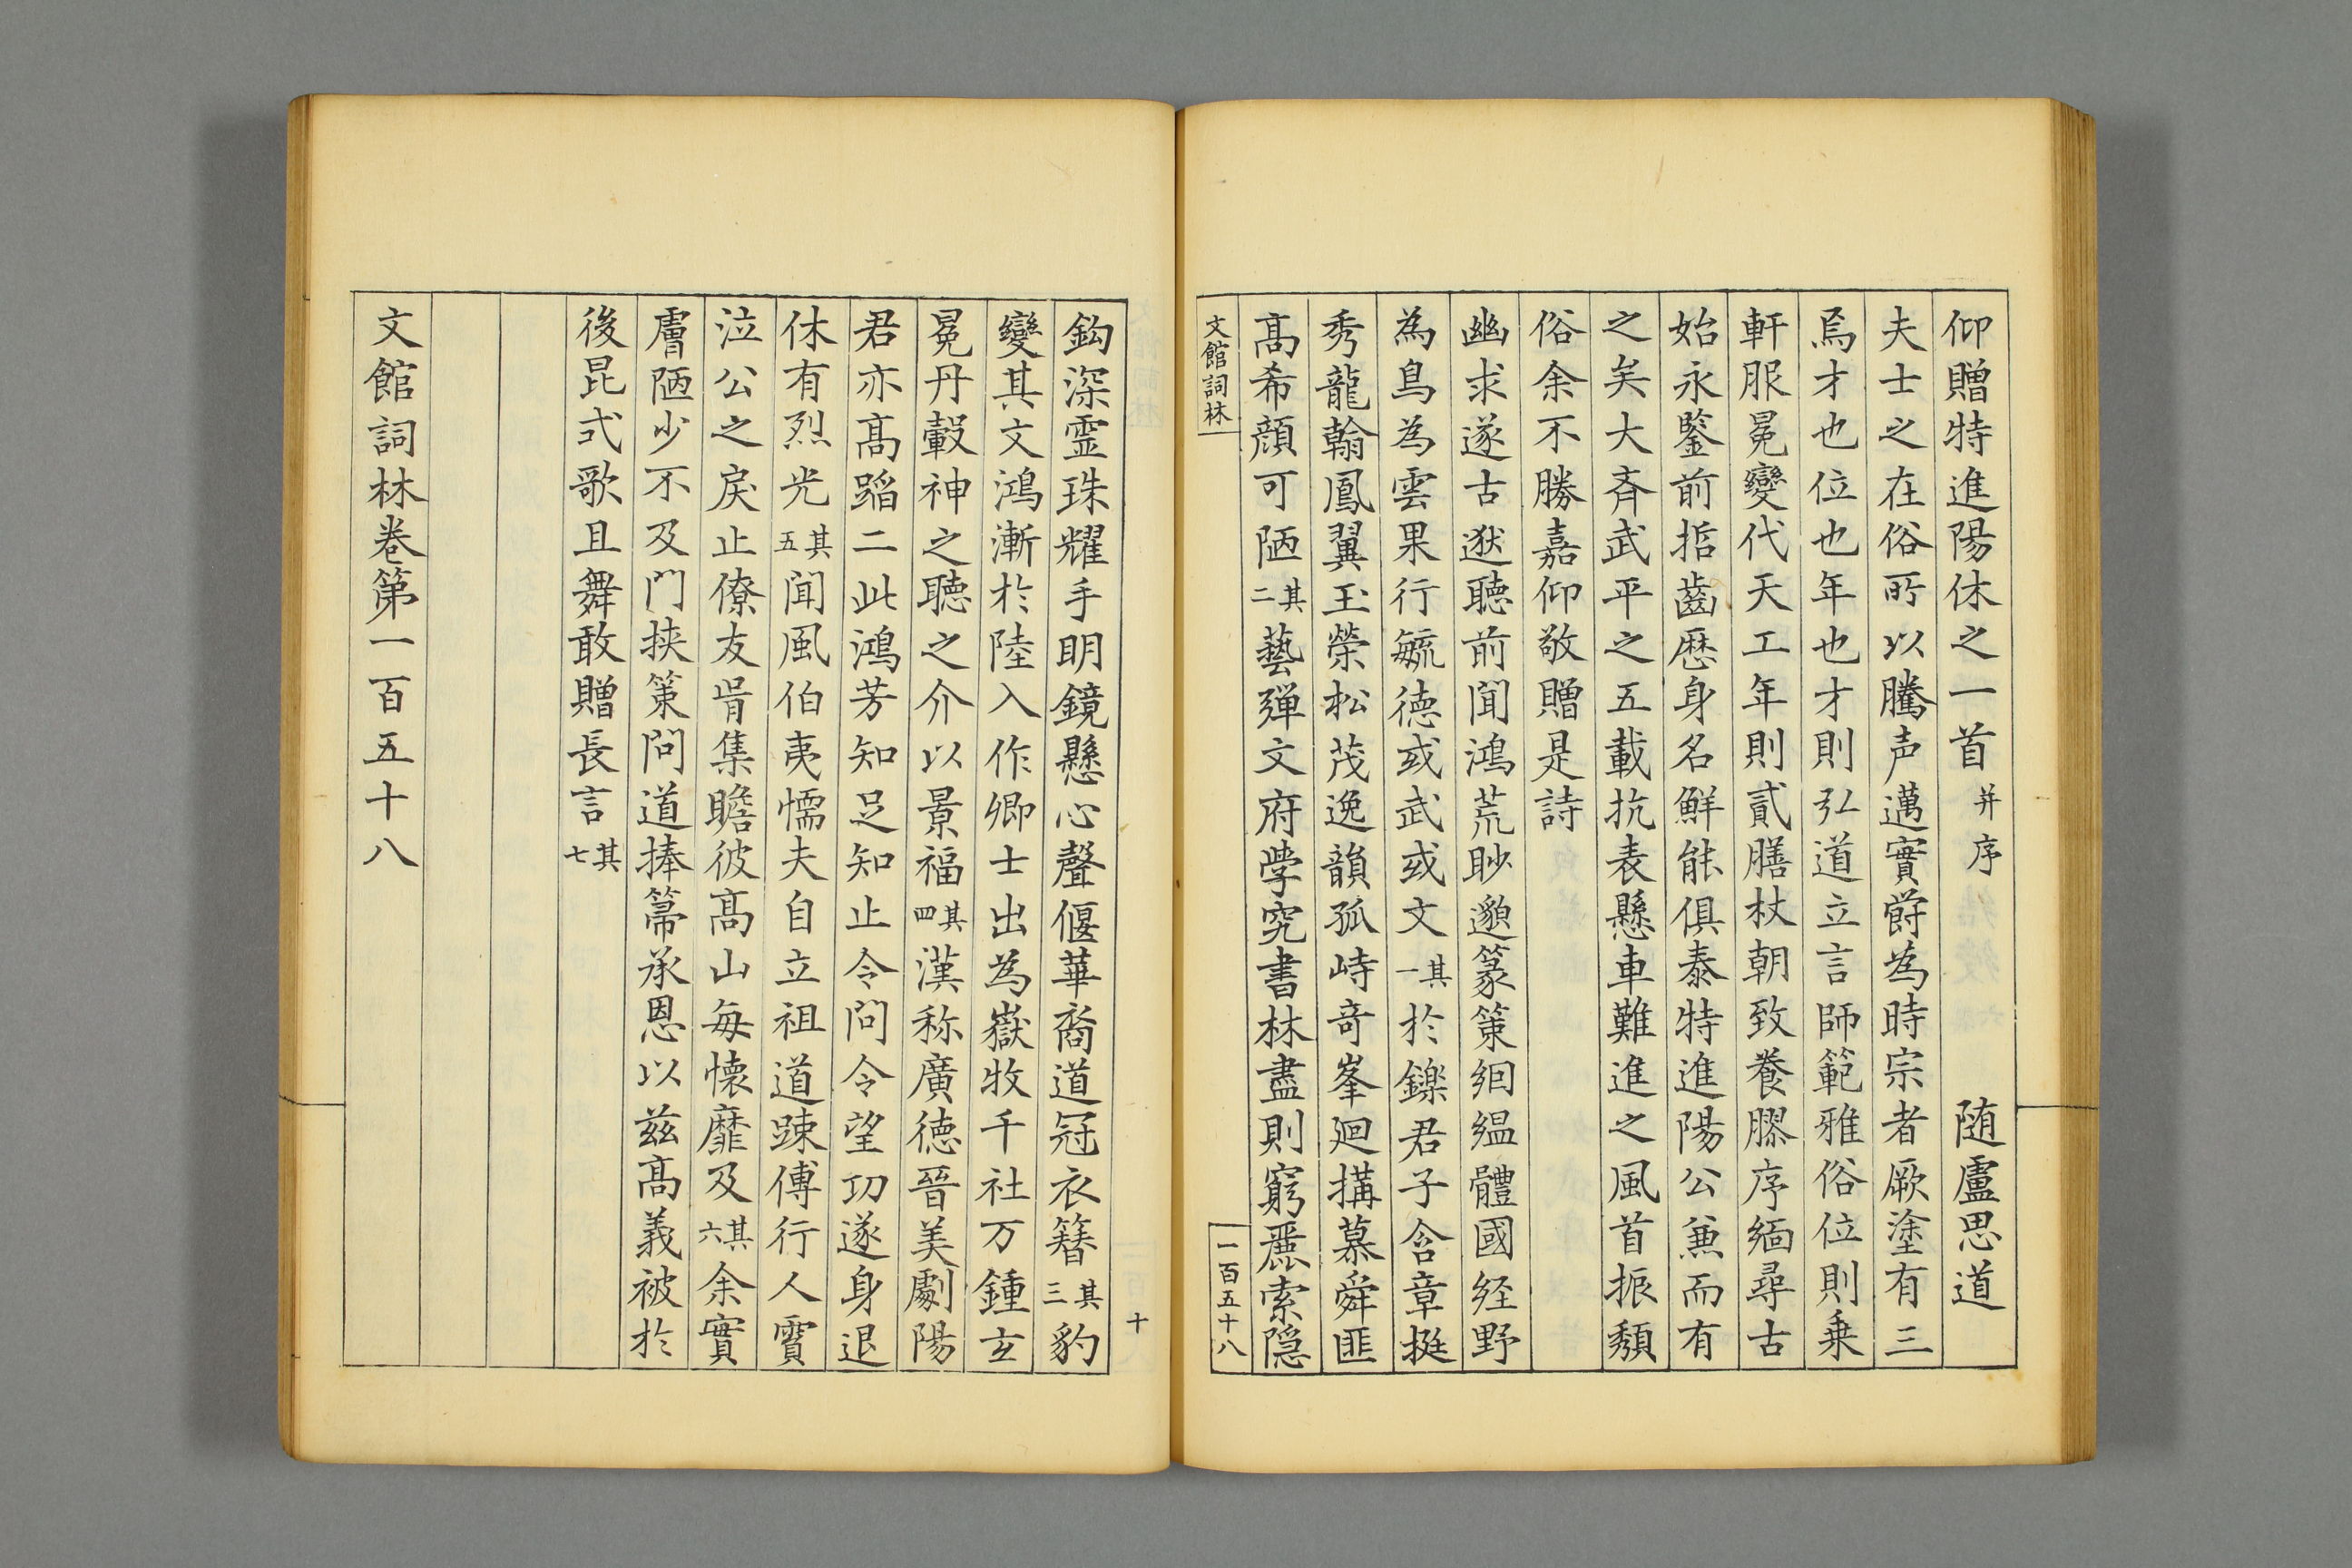 仰贈特進陽休之一首并序 随盧思道
夫士之在俗所以騰声邁實爵為時宗者厥塗有三
焉才也位也年也才則弘道立言師範雅俗位則乗
軒服冕變代天工年則貳膳杖朝致養膠序緬尋古
始永鑒前哲齒歴身名鮮能俱泰特進陽公兼而有
之矣大齊武平之五載抗表懸車難進之風首振頽
俗余不勝嘉仰敬贈是詩
幽求遂古逖聴前聞鴻荒眇邈篆策絪縕體國経野
為鳥為雲果行毓徳或武或文其一於鑠君子含章挺
秀龍翰鳳翼玉榮松茂逸韻孤峙竒峯廻搆慕舜匪
髙希顔可陋其二藝殫文府学究書林盡則窮麗索隠
文館詞林
一百五十八
十
鈎深霊珠耀手明鏡懸心聲偃華裔道冠衣簪其三豹
變其文鴻漸於陸入作卿士出為嶽牧千社万鍾玄
冕丹轂神之聴之介以景福其四漢称廣徳晉美劇陽
君亦髙蹈二此鴻芳知足知止令問令望功遂身退
休有烈光其五聞風伯夷懦夫自立祖道踈傅行人賓
泣公之戻止僚友胥集瞻彼髙山毎懐靡及其六余實
膚陋少不及門挟策問道捧箒承恩以兹髙義被於
後昆式歌且舞敢贈長言其七
文館詞林巻第一百五十八